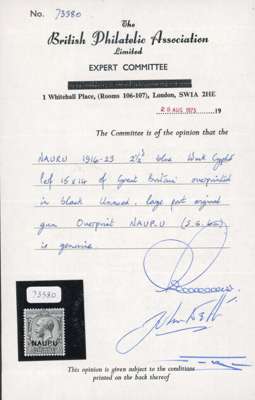 No. 73580
The
British Philatelic Association
Limited
EXPERT COMMITTEE
1 Whitehall Place, (Rooms 106-107), London, SW1A 2HE
28 AUG 1975 19
The Committee is of the opinion that the
NAURU 1916-23 2½d blue Wmk Cypher
Perf 15 x 14 of Great Britain overprinted
in black Unused, large part original
gum Overprint NAUP.U (S.G.
is genuine.
73580
NAUPU
This opinion is given subject to the conditions
printed on the back thereof